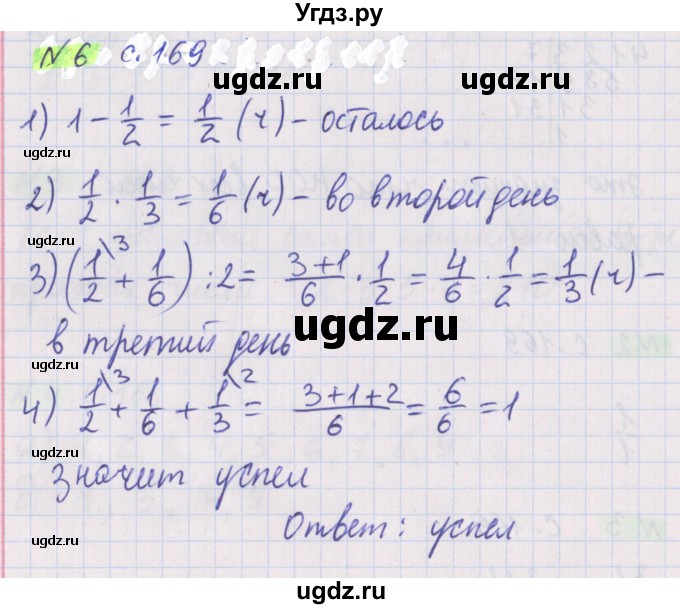 Угдз.ру
№6 с.169
ugdz.ru ugdz.ru
1) 1 - 1/2 = 1/2 (ч) - осталось
ugdz.ru
2) 1/2 · 1/3 = 1/6 (ч) - во второй день
ugdz.ru
3) (1/2\3 + 1/6) : 2 = 3+1/6 · 1/2 = 4/6 · 1/2 = 1/3 (ч) -
ugdz.ru
в третий день
ugdz.ru
4) 1/2\3 + 1/6 + 1/3\2 = 3+1+2/6 = 6/6 = 1
значит успел
ugdz.ru
Ответ: успел
ugdz.ru ugdz.ru